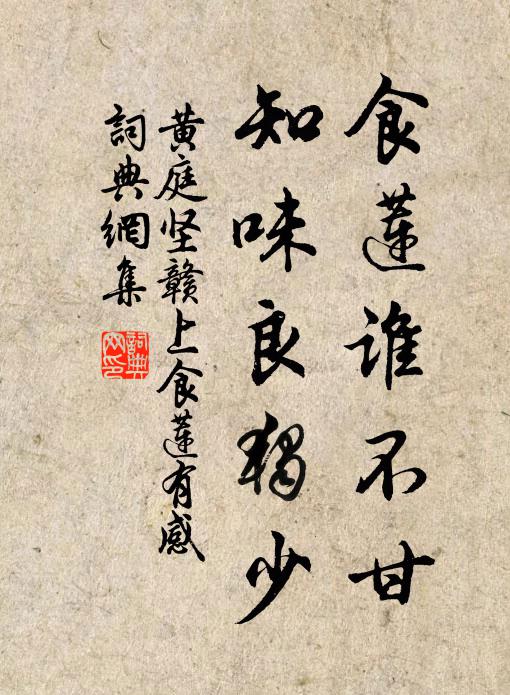 食蓮誰不甘
知味良獨少
黃庭坚贛上食蓮有感
詞典網集
詞典
网印